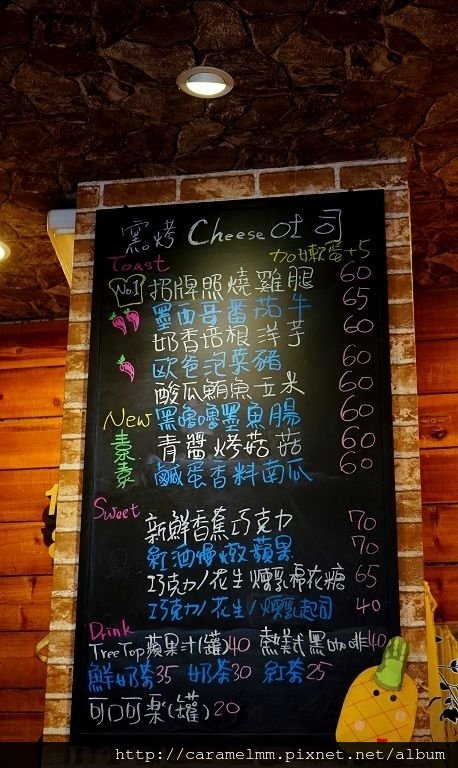 窯烤 Cheese 吐司
加嫩蛋+5
Toast
No.1 招牌照燒雞腿 60
墨西哥番茄牛 65
奶香培根洋芋 60
歐爸泡菜豬 60
酸瓜鮪魚玉米 60
New 黑嚕嚕墨魚腸 60
素 青醬烤菇菇 60
素 鹹蛋香料南瓜 60
Sweet
新鮮香蕉巧克力 70
紅酒慢燉蘋果 70
巧克力/花生/煉乳棉花糖 65
巧克力/花生/煉乳起司 40
Drink
Tree Top蘋果汁(罐)40 熱美式黑咖啡40
鮮奶茶35 奶茶30 紅茶25
可口可樂(罐)20
http://caramelmm.pixnet.net/album